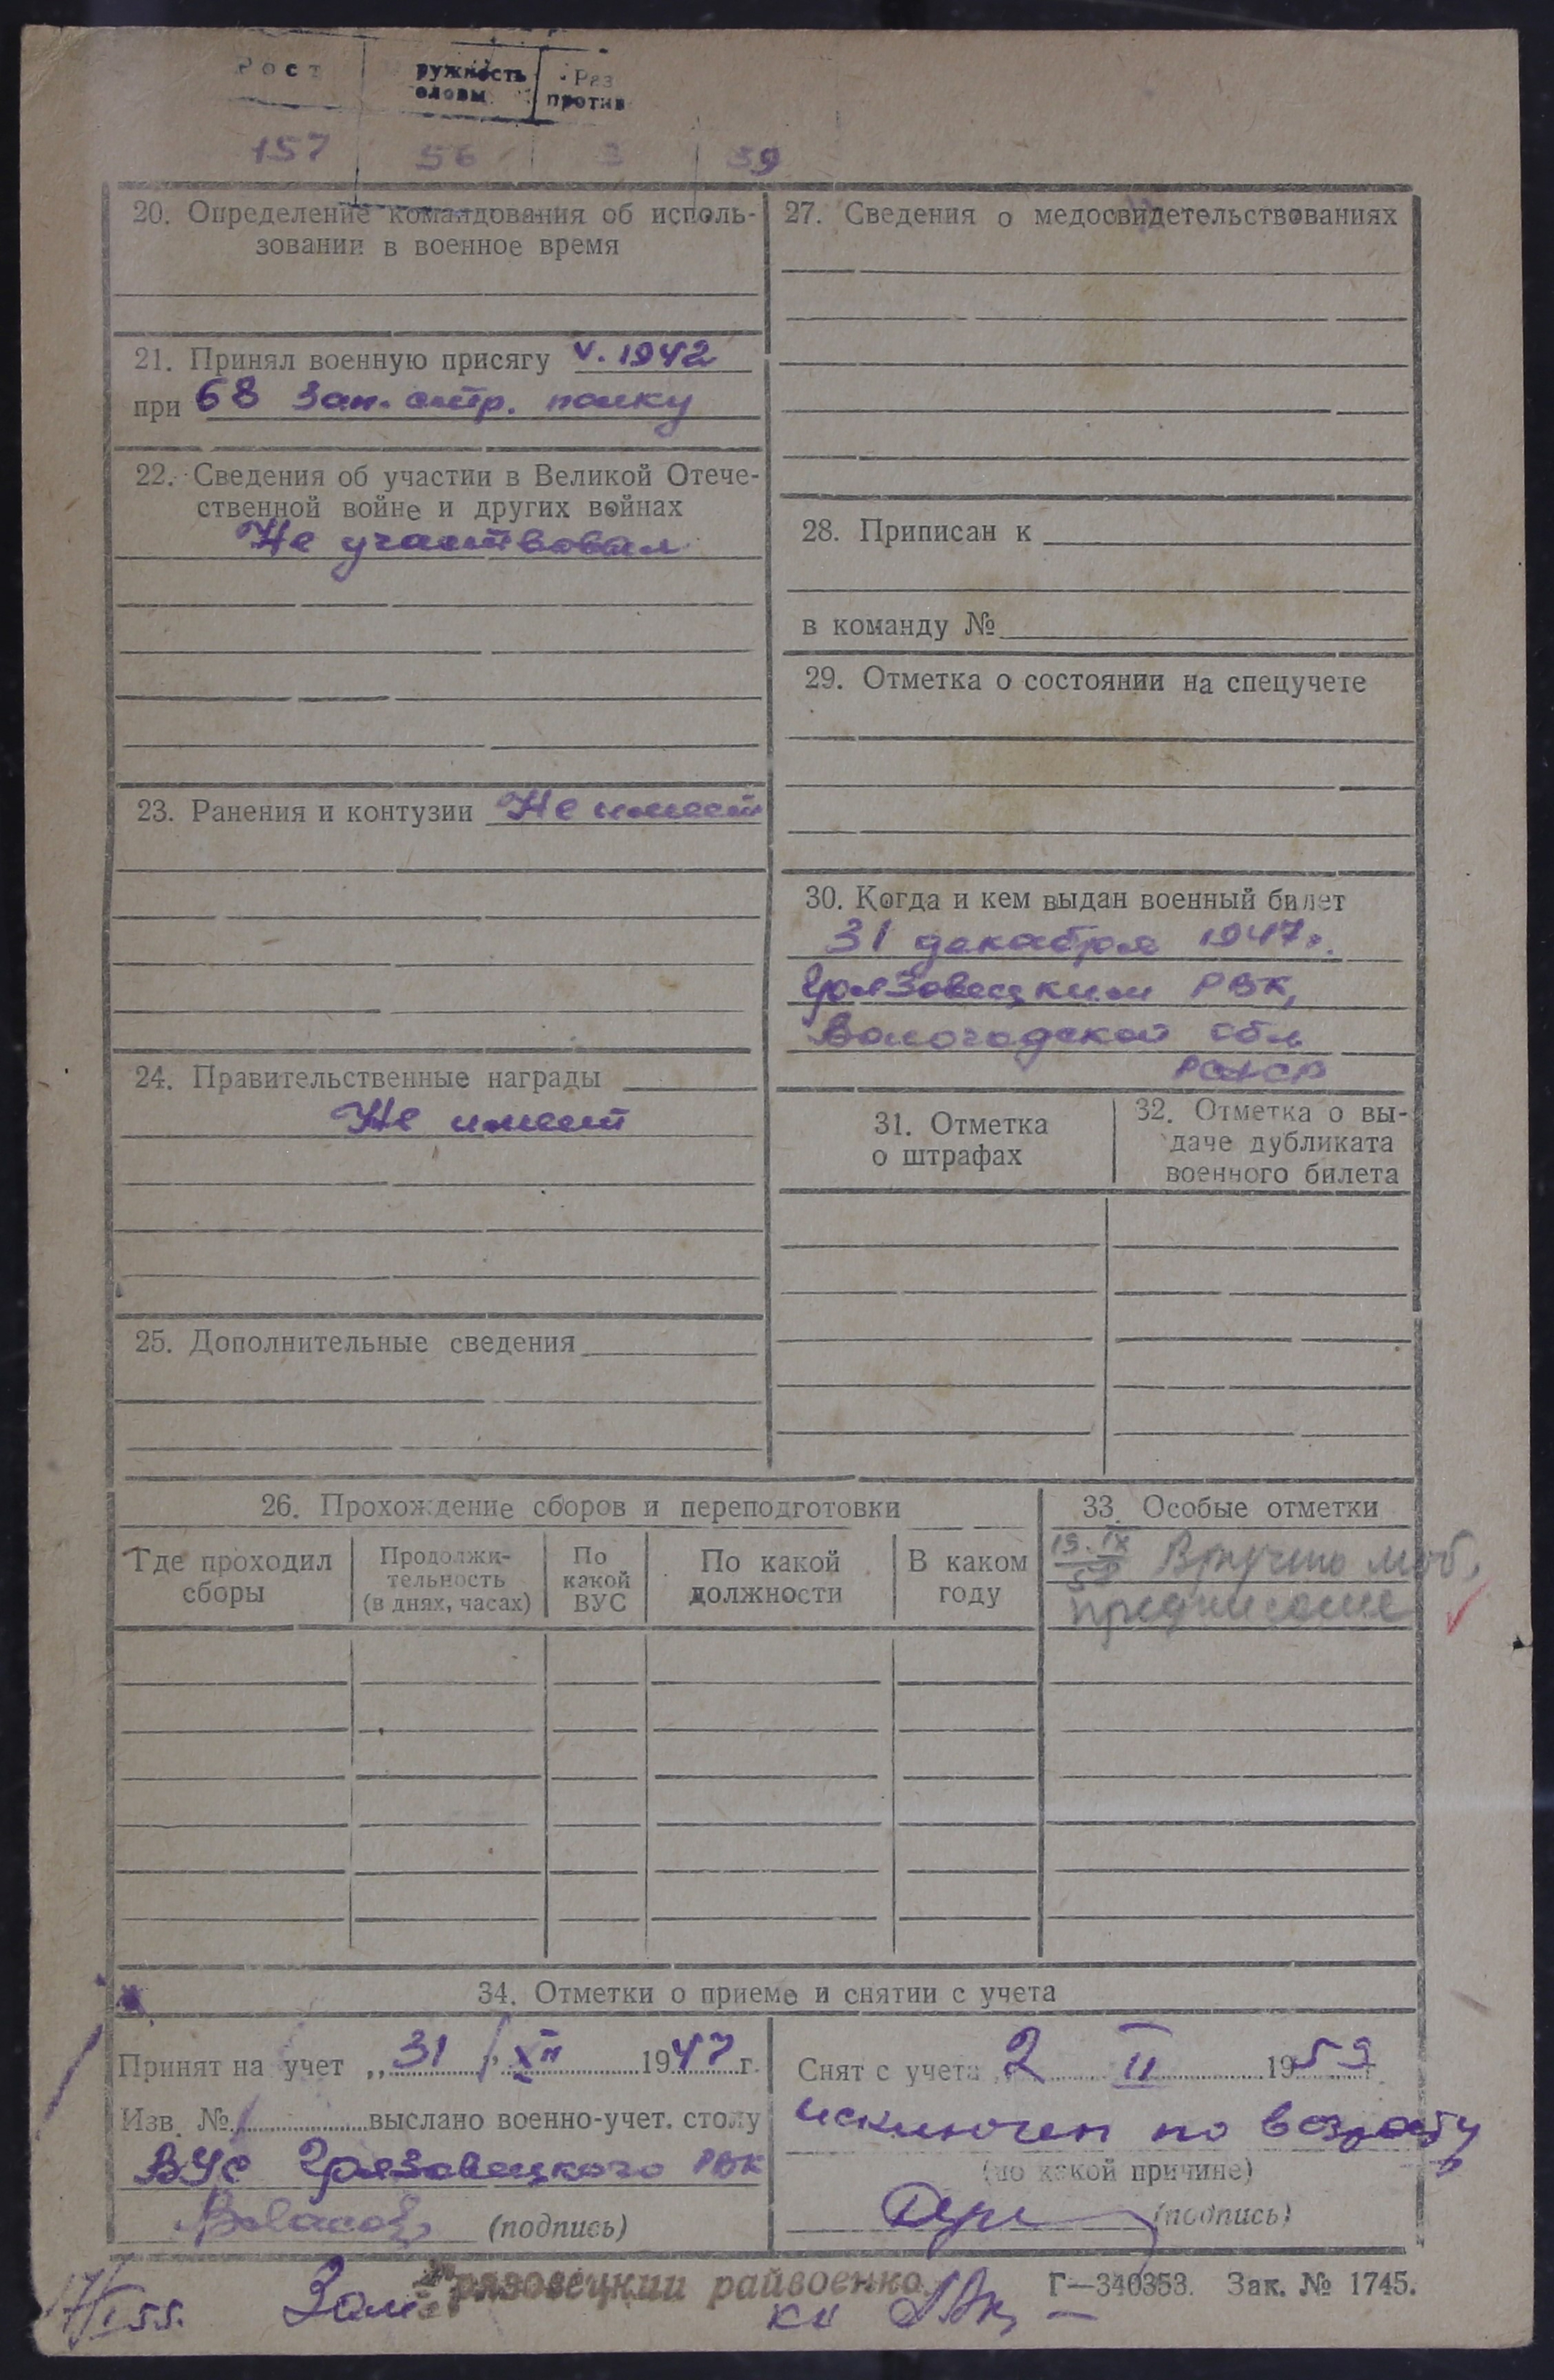 Рост ружность Раз
еловы против
157 56 3 59
20. Определение командования об исполь-
зовании в военное время
21. Принял военную присягу V. 1942
при 68 Зап. стр. полку
22. Сведения об участии в Великой Отече-
ственной войне и других войнах
Не участвовал
23. Ранения и контузии Не имеет
24. Правительственные награды
Не имеет
25. Дополнительные сведения
27. Сведения о медосвидетельствованиях
28. Приписан к
в команду №
29. Отметка о состоянии на спецучете
30. Когда и кем выдан военный билет
31 декабря 1947г.
Грязовецким РВК,
Вологодской обл
РСФСР
31. Отметка
о штрафах
32. Отметка о вы-
даче дубликата
военного билета
26. Прохождение сборов и переподготовки
Где проходил
сборы
Продолжи-
тельность
(в днях, часах)
По
какой
ВУС
По какой
должности
В каком
году
33. Особые отметки
19.IX Вручено моб.
предписание
34. Отметки о приеме и снятии с учета
Принят на учет „ 31 " XII 1947 г.
Изв. № выслано военно-учет. столу
ВУС Грязовецкого РВК
(подпись)
Снят с учета 2 II 1959 г.
исключен по возрасту
(по какой причине)
(подпись)
17/I 55. Зам. Грязовецкий райвоенко
Г—340353. Зак. № 1745.